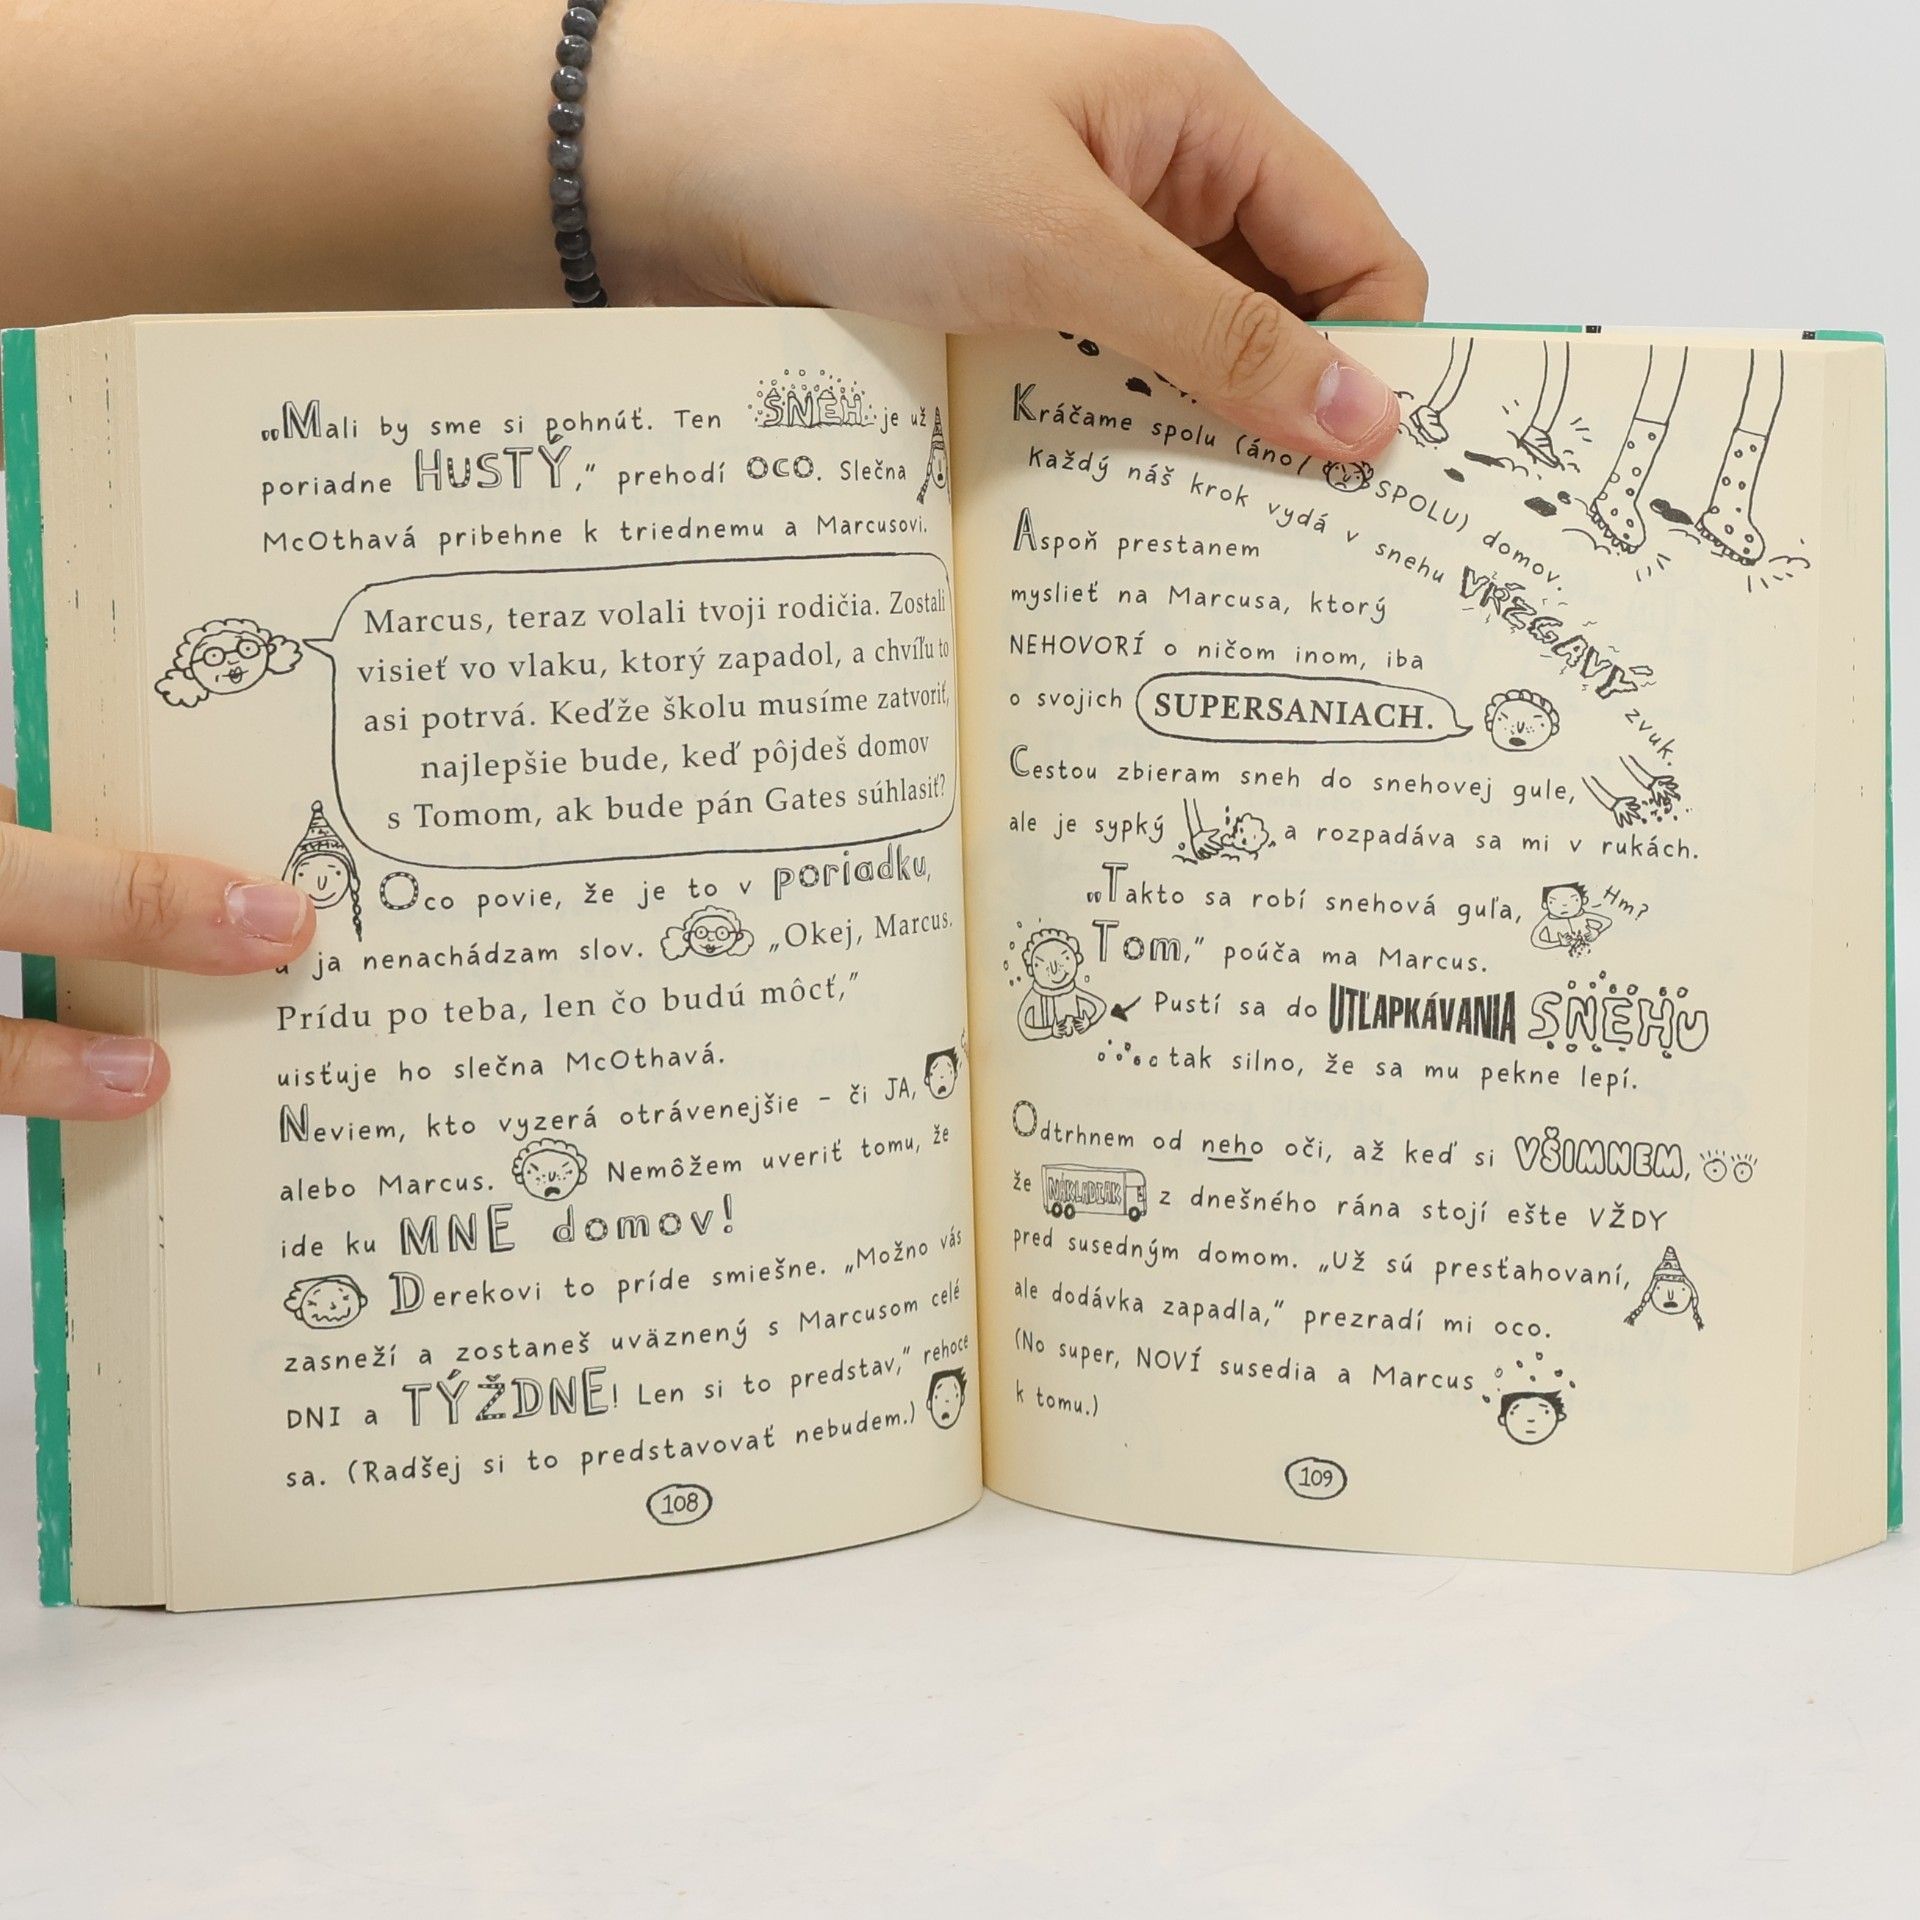 „Mali by sme si pohnúť. Ten SNEH je už
poriadne HUSTÝ,“ prehodí OCO. Slečna
McOthavá pribehne k triednemu a Marcusovi.
Marcus, teraz volali tvoji rodičia. Zostali
visieť vo vlaku, ktorý zapadol, a chvíľu to
asi potrvá. Keďže školu musíme zatvoriť,
najlepšie bude, keď pôjdeš domov
s Tomom, ak bude pán Gates súhlasiť?
Oco povie, že je to v poriadku,
a ja nenachádzam slov. „Okej, Marcus.
Prídu po teba, len čo budú môcť,“
uisťuje ho slečna McOthavá.
Neviem, kto vyzerá otrávenejšie – či JA,
alebo Marcus. Nemôžem uveriť tomu, že
ide ku MNE domov!
Derekovi to príde smiešne. „Možno vás
zasneží a zostaneš uväznený s Marcusom celé
DNI a TÝŽDNE! Len si to predstav,“ rehoce
sa. (Radšej si to predstavovať nebudem.)
108
Kráčame spolu (áno, SPOLU) domov.
Každý náš krok vydá v snehu VŔZGAVÝ zvuk.
Aspoň prestanem
myslieť na Marcusa, ktorý
NEHOVORÍ o ničom inom, iba
o svojich SUPERSANIACH.
Cestou zbieram sneh do snehovej gule,
ale je sypký a rozpadáva sa mi v rukách.
„Takto sa robí snehová guľa, Hm?
Tom,“ poúča ma Marcus.
Pustí sa do UTĽAPKÁVANIA SNEHU
tak silno, že sa mu pekne lepí.
Odtrhnem od neho oči, až keď si VŠIMNEM,
že NÁKLADIAK z dnešného rána stojí ešte VŽDY
pred susedným domom. „Už sú presťahovaní,
ale dodávka zapadla,“ prezradí mi oco.
(No super, NOVÍ susedia a Marcus
k tomu.)
109